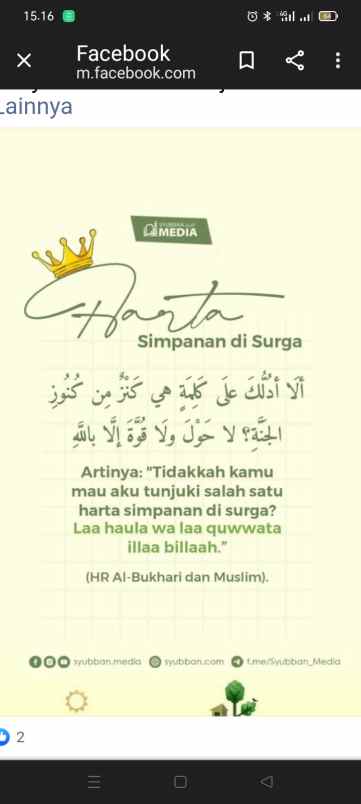 15.16
4G
64
Facebook
m.facebook.com
Lainnya
MEDIA
Harta
Simpanan di Surga
أَلَا أَدُلُّكَ عَلَى كَلِمَةٍ هِي كَنْزٌ مِن كُنُوزِ
الجَنَّةِ؟ لَا حَوْلَ وَلَا قُوَّةَ إِلَّا بِاللَّهِ
Artinya: "Tidakkah kamu
mau aku tunjuki salah satu
harta simpanan di surga?
Laa haula wa laa quwwata
illaa billaah."
(HR Al-Bukhari dan Muslim).
syubban.media syubban.com t.me/Syubban_Media
2